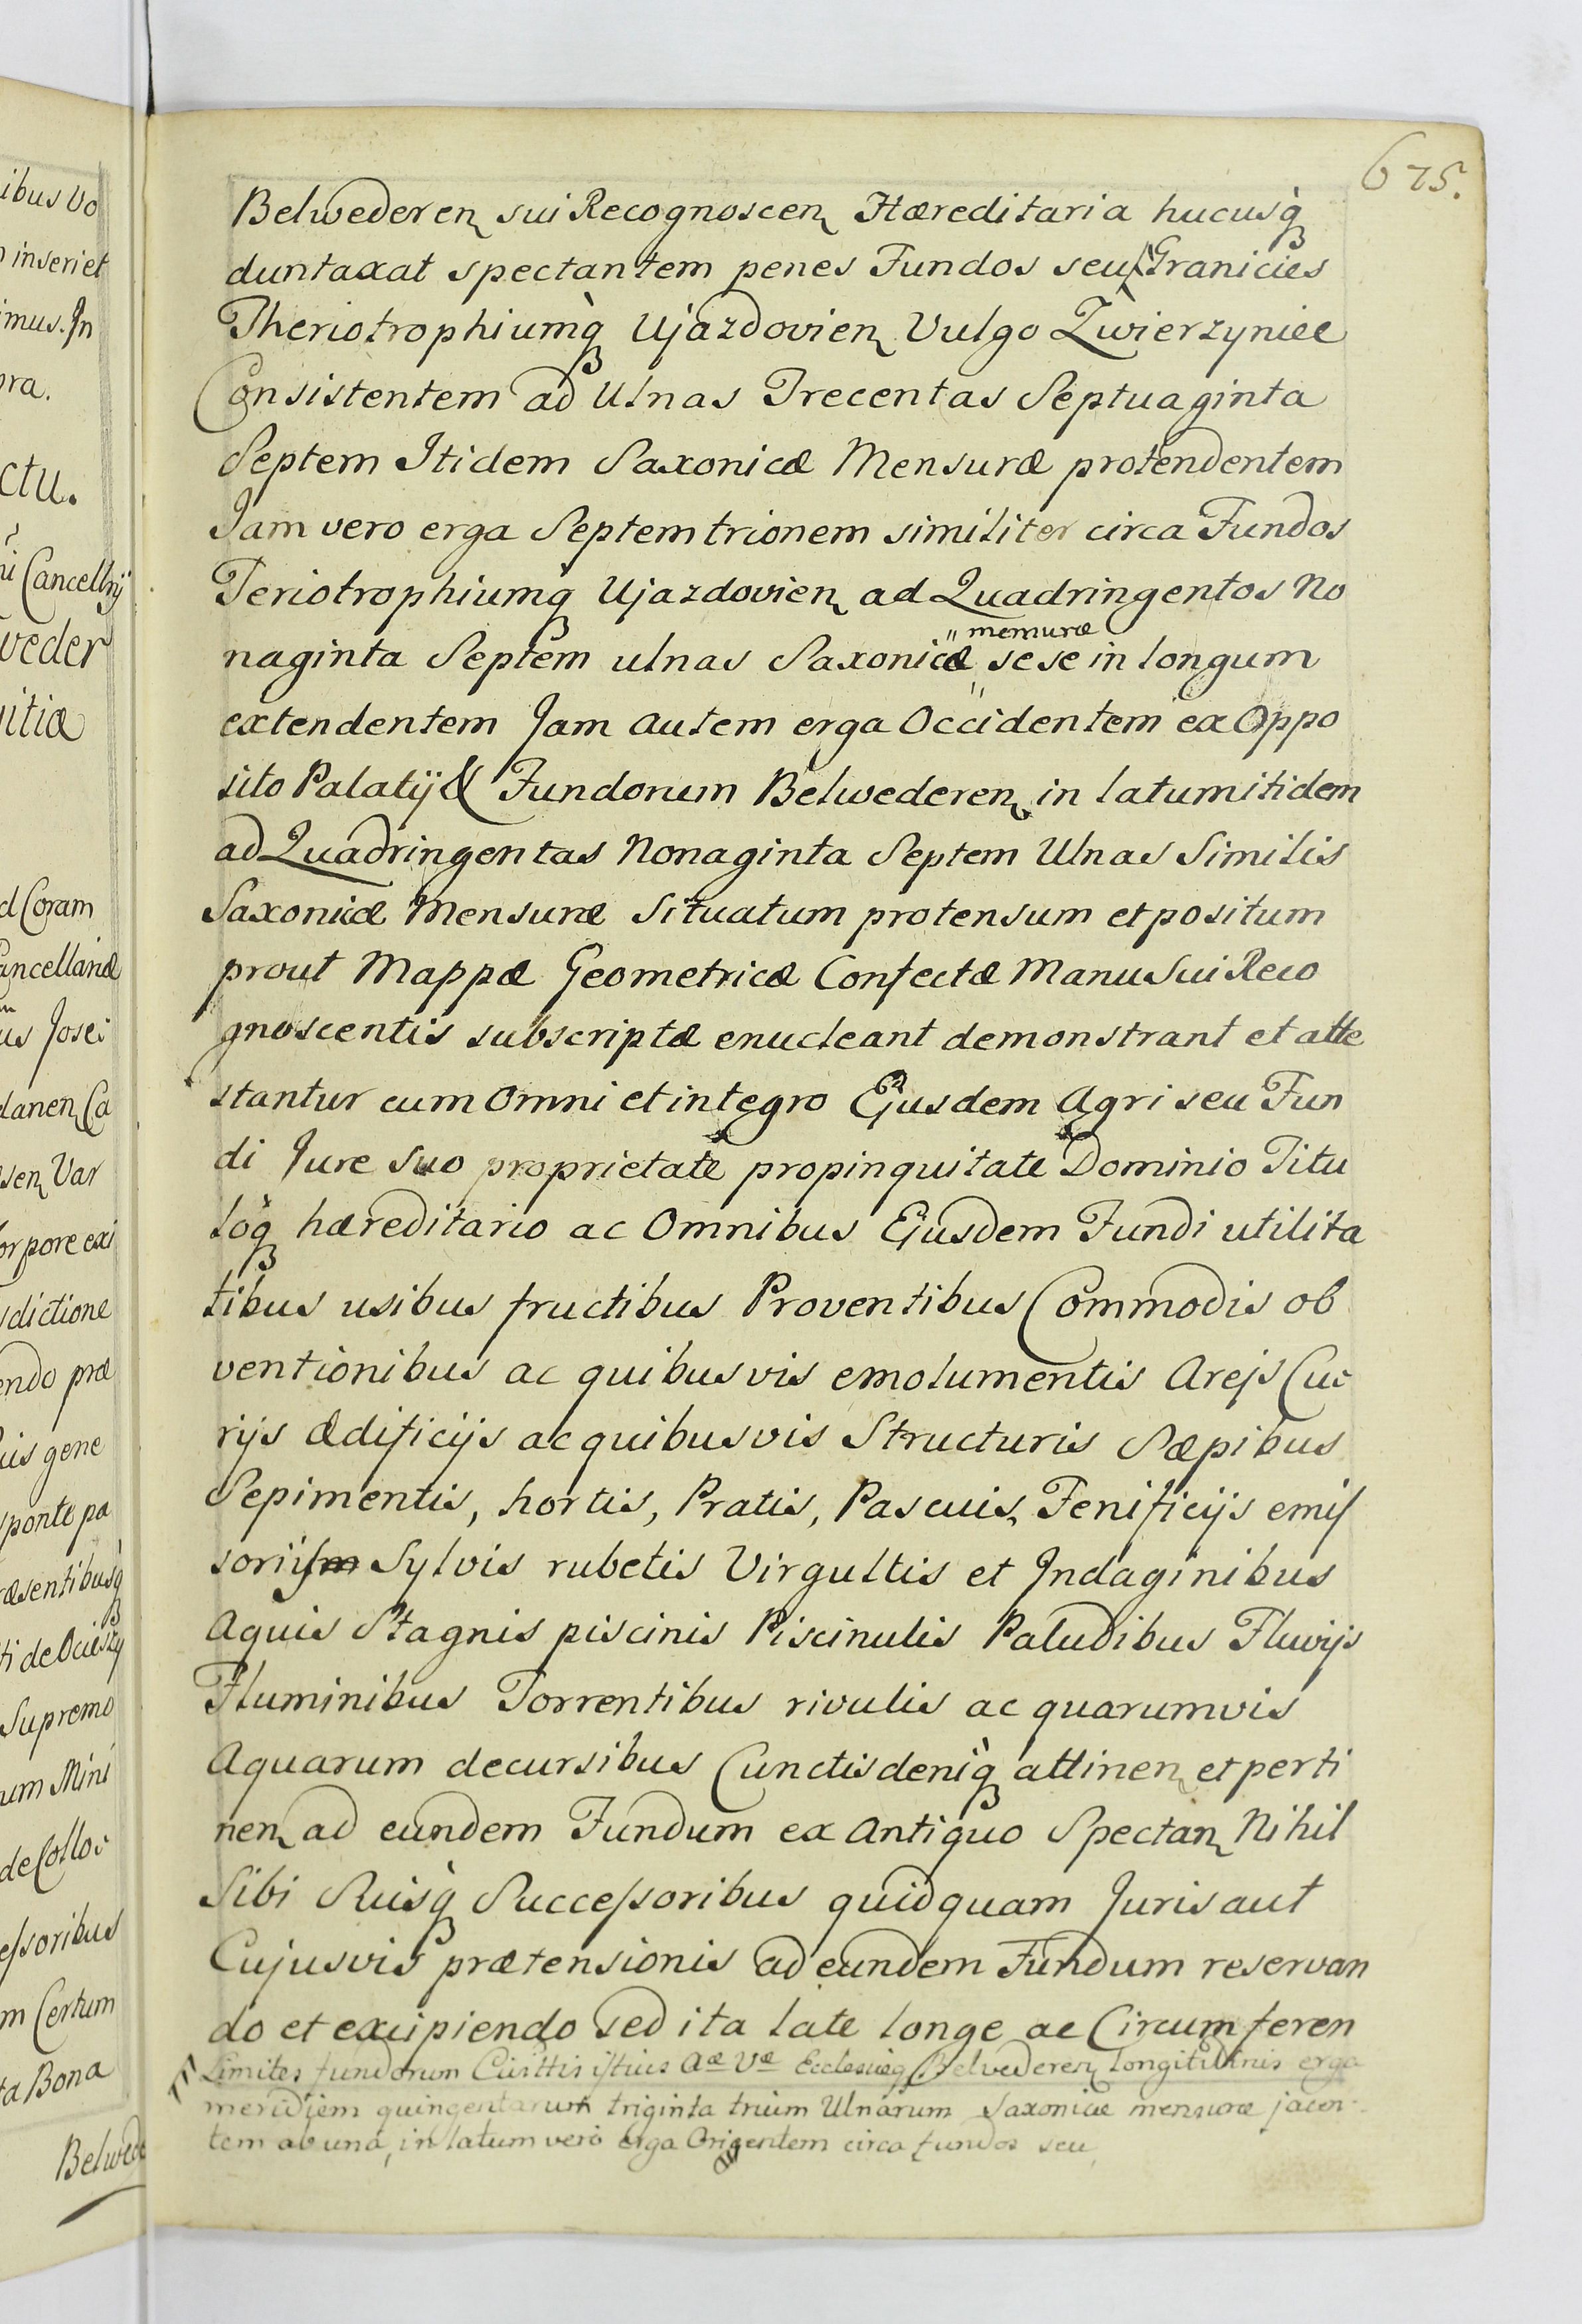 675.
Belwederen sui Recognoscen Hæreditaria hucusq
duntaxat spectantem penes Fundos seu Granicies
Theriotrophiumq Ujazdovien Vulgo Zwierzyniec
Consistentem ad Ulnas Trecentas Septuaginta
Septem Itidem Saxonicæ Mensuræ protendentem
Jam vero erga Septemtrionem similiter circa Fundos
Teriotrophiumq Ujazdovien ad Quadringentos No
mensuræ
naginta Septem ulnas Saxonicæ sese in longum
extendentem Jam autem erga Occidentem ex Oppo
sito Palatij & Fundorum Belwederen in latum itidem
ad Quadringentas Nonaginta Septem Ulnas Similis
Saxonicæ Mensuræ Situatum protensum et positum
prout Mappæ Geometricæ Confectæ Manu Sui Reco
gnoscentis subscriptæ enucleant demonstrant et atte
stantur cum Omni et integro Ejusdem Agri seu Fun
di Jure Suo proprietate propinquitate Dominio Titu
loq hæreditario ac Omnibus Ejusdem Fundi utilita
tibus usibus fructibus Proventibus Commodis ob
ventionibus ac quibusvis emolumentis Arejs Cu
rijs Ædificijs ac quibusvis Structuris Sæpibus
Sepimentis, hortis, Pratis, Pascuis, Fenificijs emis
sorijs Sylvis rubetis Virgultis et Indaginibus
Aquis Stagnis piscinis Piscinulis Paludibus Fluvijs
Fluminibus Torrentibus rivulis ac quarumvis
Aquarum decursibus Cunctis deniq attinen et perti
nen ad eundem Fundum ex Antiquo Spectan Nihil
Sibi Suisq Successoribus quidquam Juris aut
Cujusvis prætensionis ad eundem Fundum reservan
do et excipiendo sed ita late longe ac Circumferen
Limites fundorum istius Aæ Væ Ecclesieq Belvederen longitudinis erga
meridiem quingentarum triginta trium Ulnarum Saxonicæ mensuræ jacen
tem ab una, in latum vero erga Orientem circa fundos seu